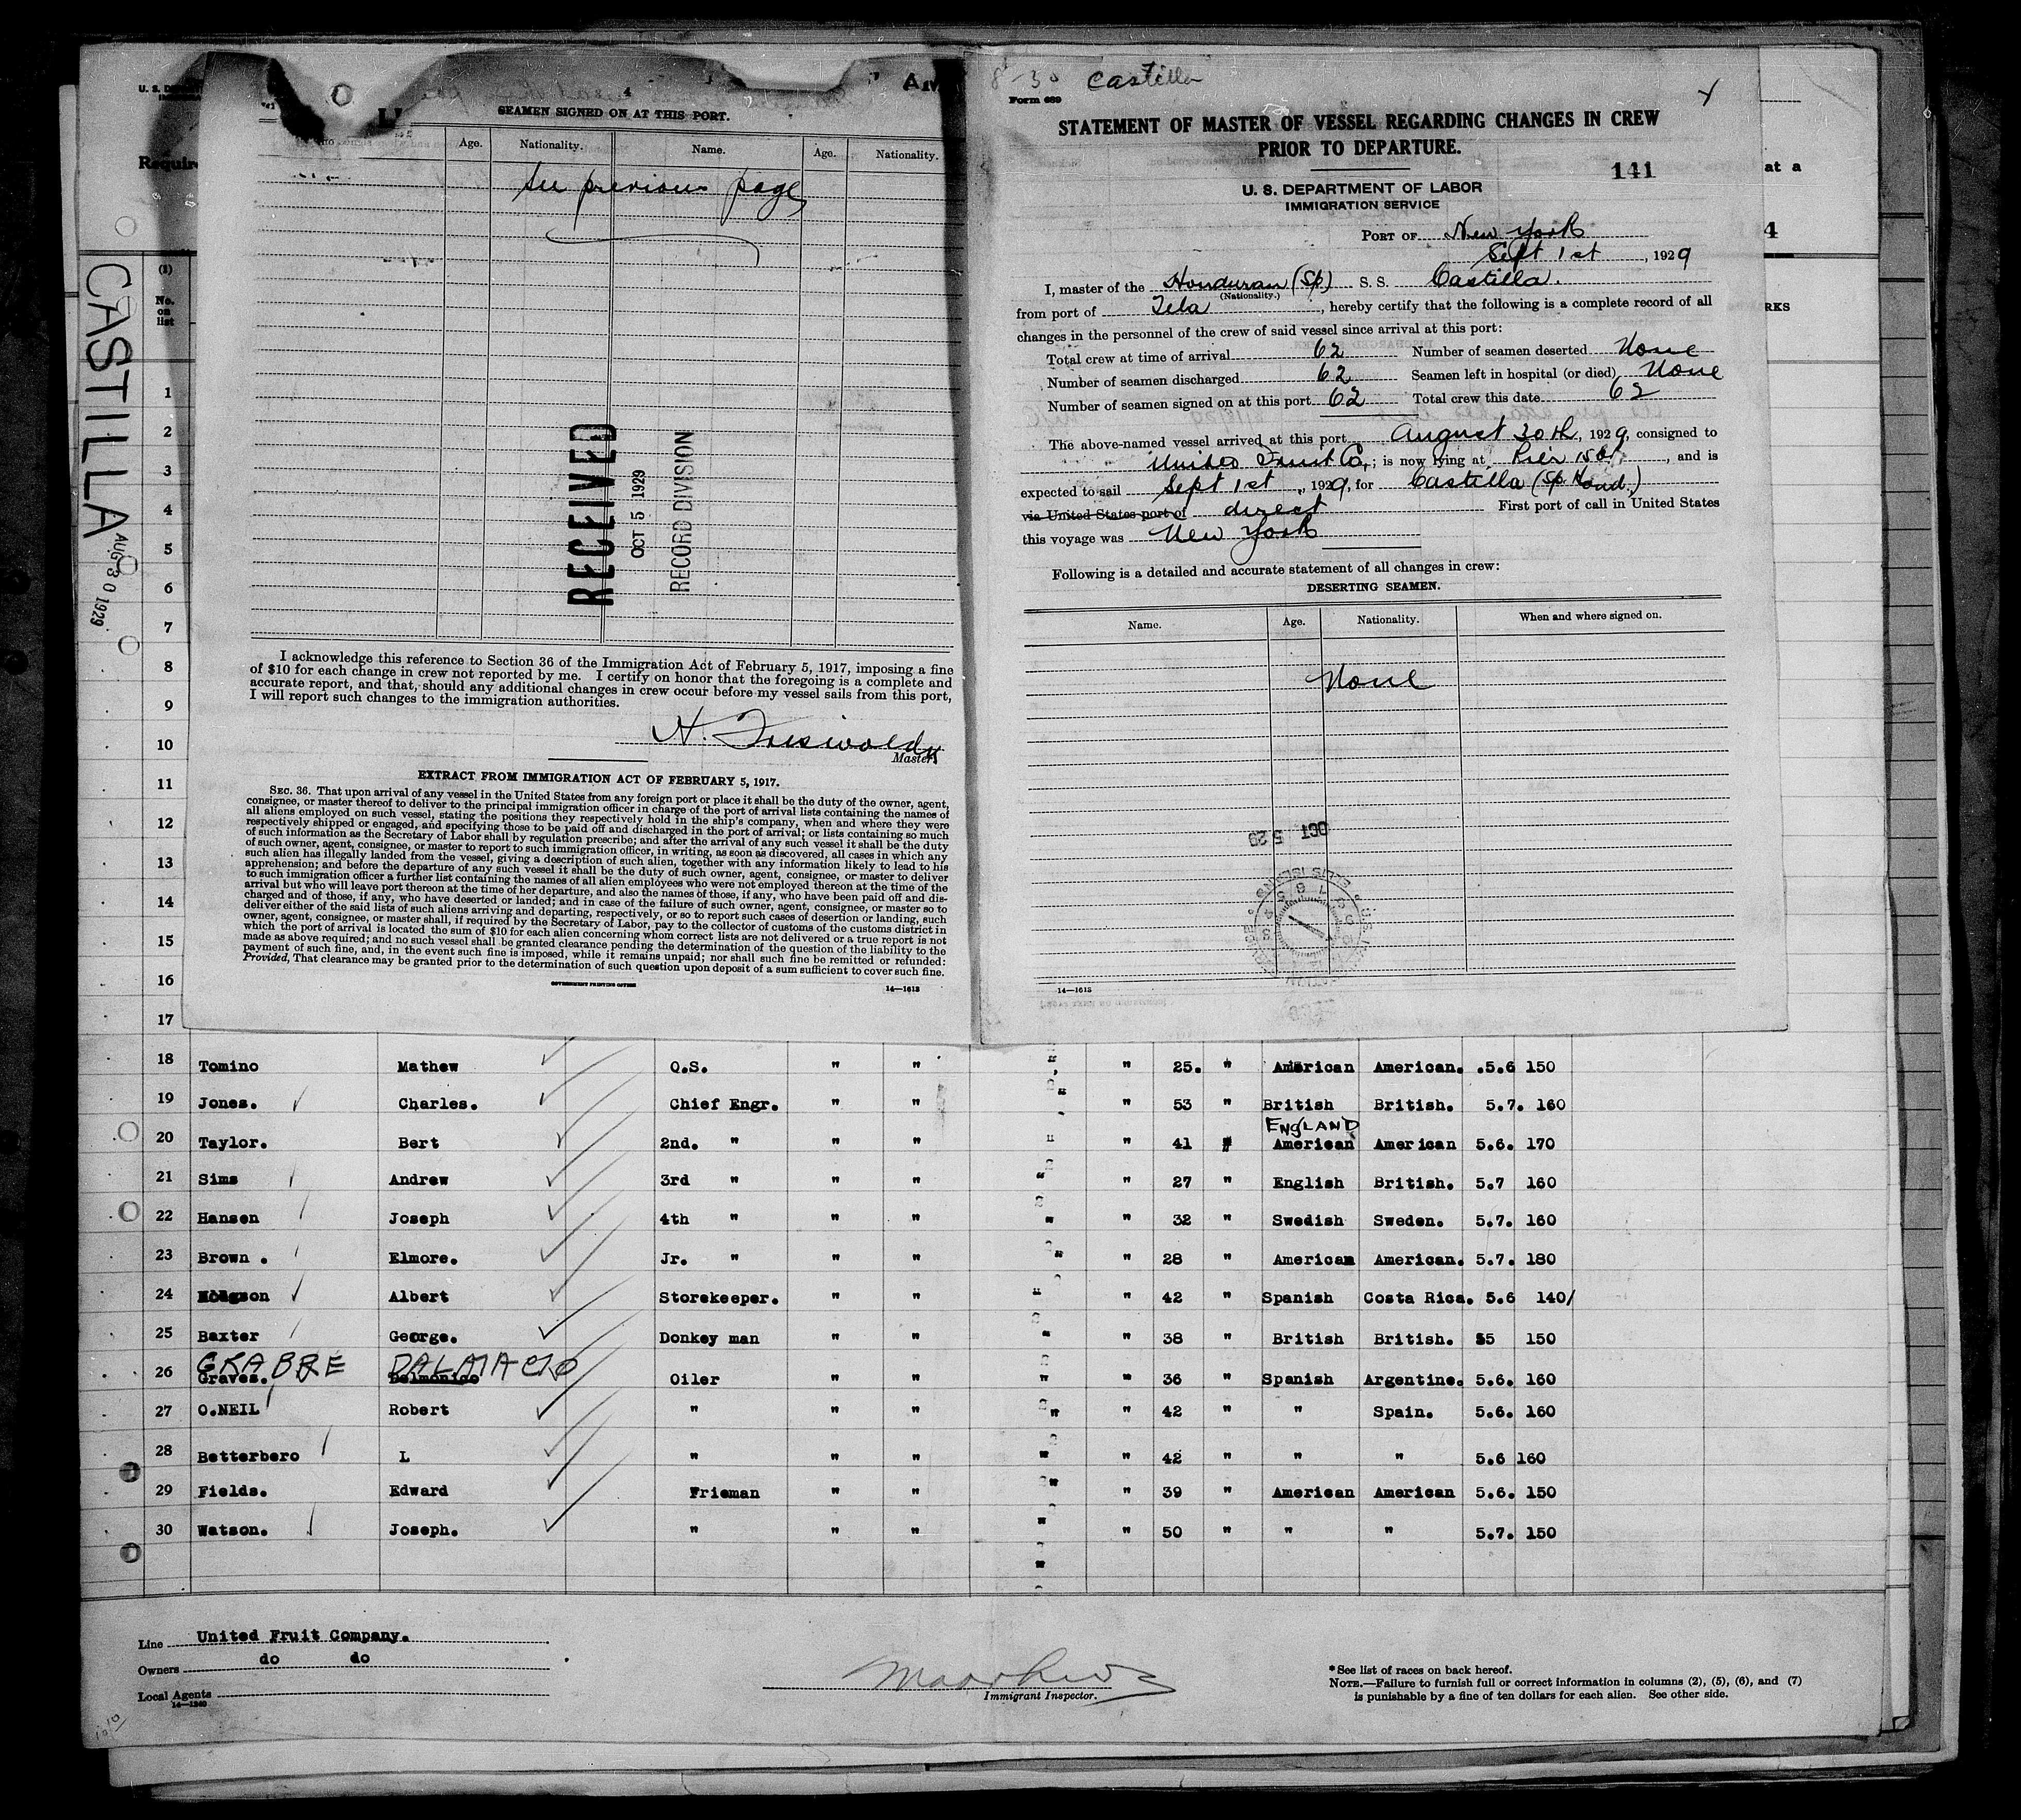 U. S. D
Requir
CASTILLA
AUG 30 1929
4
AM
SEAMEN SIGNED ON AT THIS PORT.
Age. Nationality. Name. Age. Nationality.
See previous page
RECEIVED
OCT 5 1929
RECORD DIVISION
I acknowledge this reference to Section 36 of the Immigration Act of February 5, 1917, imposing a fine
of $10 for each change in crew not reported by me. I certify on honor that the foregoing is a complete and
accurate report, and that, should any additional changes in crew occur before my vessel sails from this port,
I will report such changes to the immigration authorities.
H. Griswold
Master
EXTRACT FROM IMMIGRATION ACT OF FEBRUARY 5, 1917.
SEC. 36. That upon arrival of any vessel in the United States from any foreign port or place it shall be the duty of the owner, agent,
consignee, or master thereof to deliver to the principal immigration officer in charge of the port of arrival lists containing the names of
all aliens employed on such vessel, stating the positions they respectively hold in the ship's company, when and where they were
respectively shipped or engaged, and specifying those to be paid off and discharged in the port of arrival; or lists containing so much
of such information as the Secretary of Labor shall by regulation prescribe; and after the arrival of any such vessel it shall be the duty
of such owner, agent, consignee, or master to report to such immigration officer, in writing, as soon as discovered, all cases in which any
such alien has illegally landed from the vessel, giving a description of such alien, together with any information likely to lead to his
apprehension; and before the departure of any such vessel it shall be the duty of such owner, agent, consignee, or master to deliver
to such immigration officer a further list containing the names of all alien employees who were not employed thereon at the time of the
arrival but who will leave port thereon at the time of her departure, and also the names of those, if any, who have been paid off and dis-
charged and of those, if any, who have deserted or landed; and in case of the failure of such owner, agent, consignee, or master so to
deliver either of the said lists of such aliens arriving and departing, respectively, or so to report such cases of desertion or landing, such
owner, agent, consignee, or master shall, if required by the Secretary of Labor, pay to the collector of customs of the customs district in
which the port of arrival is located the sum of $10 for each alien concerning whom correct lists are not delivered or a true report is not
made as above required; and no such vessel shall be granted clearance pending the determination of the question of the liability to the
payment of such fine, and, in the event such fine is imposed, while it remains unpaid; nor shall such fine be remitted or refunded:
Provided, That clearance may be granted prior to the determination of such question upon deposit of a sum sufficient to cover such fine.
GOVERNMENT PRINTING OFFICE 14—1613
8-30 Castilla
Form 689
STATEMENT OF MASTER OF VESSEL REGARDING CHANGES IN CREW
PRIOR TO DEPARTURE.
141
at a
4
RKS
U. S. DEPARTMENT OF LABOR
IMMIGRATION SERVICE
PORT OF New York
Sept 1st, 1929
I, master of the Honduran (Sp) S. S. Castilla.
(Nationality.)
from port of Tela, hereby certify that the following is a complete record of all
changes in the personnel of the crew of said vessel since arrival at this port:
Total crew at time of arrival 62 Number of seamen deserted None
Number of seamen discharged 62 Seamen left in hospital (or died) None
Number of seamen signed on at this port 62 Total crew this date 62
The above-named vessel arrived at this port August 30th, 1929, consigned to
United Fruit Co.; is now lying at Pier 15, and is
expected to sail Sept 1st, 1929, for Castilla (Sp. Hond.)
via United States port of direct First port of call in United States
this voyage was New York
Following is a detailed and accurate statement of all changes in crew:
DESERTING SEAMEN.
Name. Age. Nationality. When and where signed on.
None
OCT 5 29
14—1613
(1)
No.
on
list
1
2
3
4
5
6
7
8
9
10
11
12
13
14
15
16
17
18 Tomino Mathew Q.S. " " " " 25. " American American. .5.6 150
19 Jones. Charles. Chief Engr. " " " " 53 " British British. 5.7. 160
ENGLAND
20 Taylor. Bert 2nd. " " " " " 41 " American American 5.6. 170
21 Sims Andrew 3rd " " " " " 27 " English British. 5.7 160
22 Hansen Joseph 4th " " " " " 32 " Swedish Sweden. 5.7. 160
23 Brown . Elmore. Jr. " " " " " 28 " American American. 5.7. 180
24 Hodgson Albert Storekeeper. " " " " 42 " Spanish Costa Rica. 5.6 140/
25 Baxter George. Donkey man " " " " 38 " British British. 55 150
GRABRE DALMACIO
26 Graves. Delmonico Oiler " " " " 36 " Spanish Argentine. 5.6. 160
27 O.NEIL Robert " " " " " 42 " " Spain. 5.6. 160
28 Betterbero L " " " " " 42 " " " 5.6 160
29 Fields. Edward Frieman " " " " 39 " American American 5.6. 150
30 Watson. Joseph. " " " " " 50 " " " 5.7. 150
Line United Fruit Company.
Owners do do
Local Agents
14—1240
Immigrant Inspector.
* See list of races on back hereof.
NOTE.—Failure to furnish full or correct information in columns (2), (5), (6), and (7)
is punishable by a fine of ten dollars for each alien. See other side.